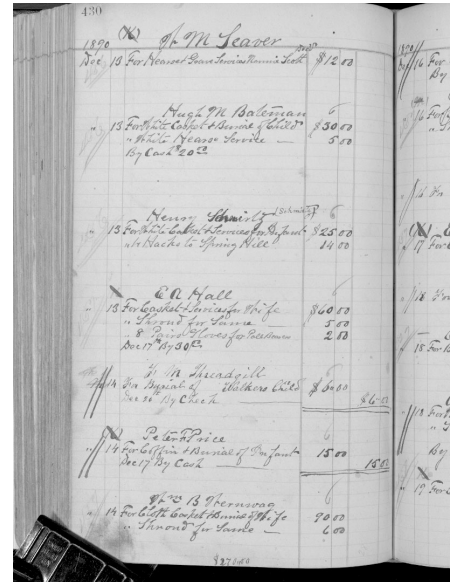 430
1890 Wm M Seaver
Dec 13 For Hearse & Grave Services Scott $12 00
Hugh M Bateman 6
" 13 For White Casket & Burial of Child $30 00
" White Hearse Service — 5 00
By Cash 20 00
Henry Schmirtz (Schmirtz) 6
" 13 For White Casket & Services for Infant $25 00
Hacks to Spring Hill 14 00
E R Hall 6
" 13 For Casket & Services for Wife $60 00
" Shroud for Same — 5 00
" 8 Pairs Gloves for Pall Bearers 2 00
Dec 17th By 30 00
M Threadgill
" 14 For Burial of Walkers Child $6 00
Dec 20th By Check $6 00
Peter F Price 6
" 14 For Coffin & Burial of Infant 15 00
Dec 17 By Cash 15 00
Wm B 6
" 14 For Cloth Casket & Burial of Wife 90 00
" Shroud for Same — 6 00
$270.00
1890
Dec 16 For
By
16 For
17 For
18
18 For
By
19 For